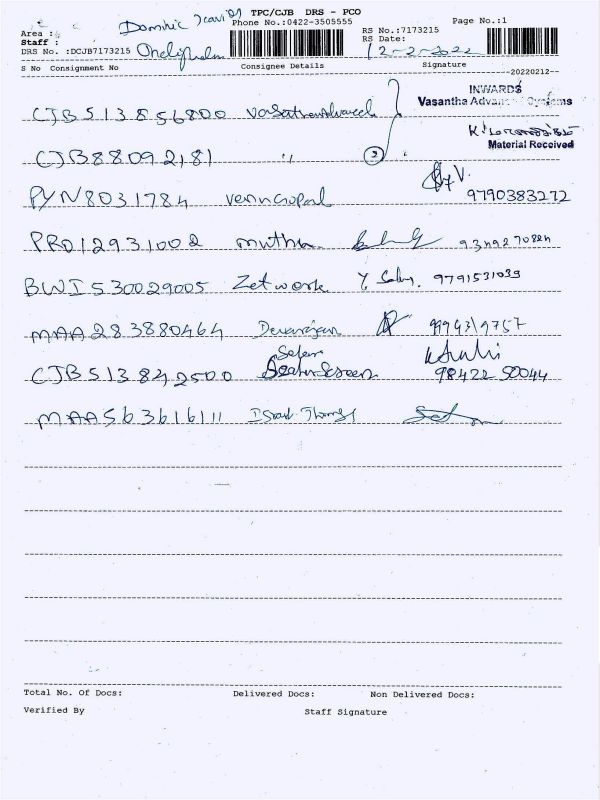 Dominic Xavier TPC/CJB DRS - PCO
Area : Phone No.:0422-3505555 RS No.:7173215 Page No.:1
Staff : RS Date: 12-2-2022
DRS No. :DCJB7173215
S No Consignment No Consignee Details Signature
--20220212--
INWARDS
Vasantha Advanced Systems
CJB513856800
CJB88092181 " 2
Material Received
PYN8031784 Venugopal 9790383272
PRD12931002 muthu
BWI530029005 Zetwork 9791531039
MAA283880464 Devarajan
CJB513842500 98422 50044
MAA563616111 Israel Thomas
Total No. Of Docs: Delivered Docs: Non Delivered Docs:
Verified By Staff Signature